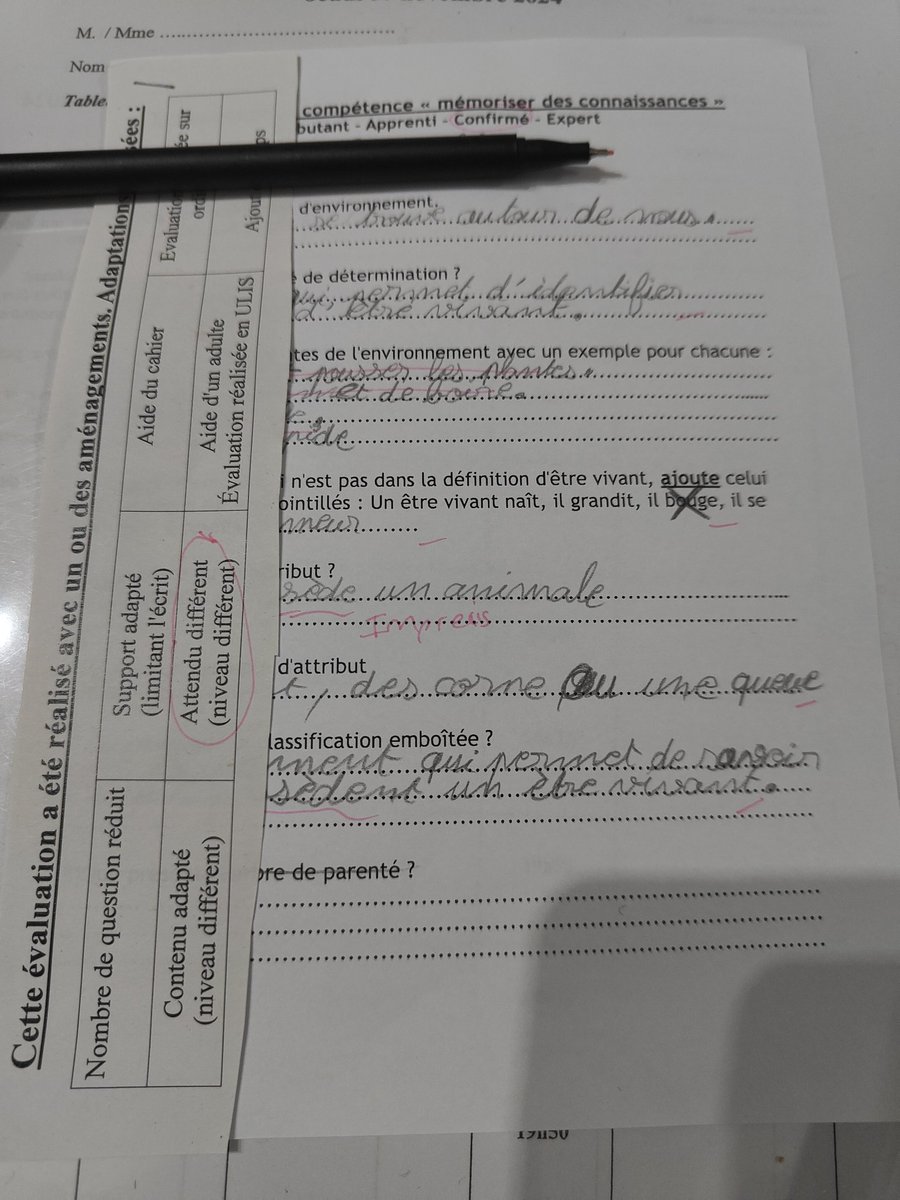 M. / Mme
Nom
Table
compétence « mémoriser des connaissances »
butant - Apprenti - Confirmé - Expert
d'environnement.
se trouve autour de nous.
de détermination ?
qui permet d'identifier
d'être vivant.
tes de l'environnement avec un exemple pour chacune :
pousser les plantes.
met de boire.
i n'est pas dans la définition d'être vivant, ajoute celui
ointillés : Un être vivant naît, il grandit, il bouge, il se
meur
ribut ?
sède un animale
Imprécis
d'attribut
t, des corne ou une queue
lassification emboîtée ?
ment qui permet de savoir
sèdent un être vivant.
bre de parenté ?
19h30
Cette évaluation a été réalisé avec un ou des aménagements. Adaptations sées :
Nombre de question réduit
Support adapté
(limitant l'écrit)
Aide du cahier
Evaluation ée sur
ord
Contenu adapté
(niveau différent)
Attendu différent
(niveau différent)
Aide d'un adulte
Évaluation réalisée en ULIS
Ajou ps